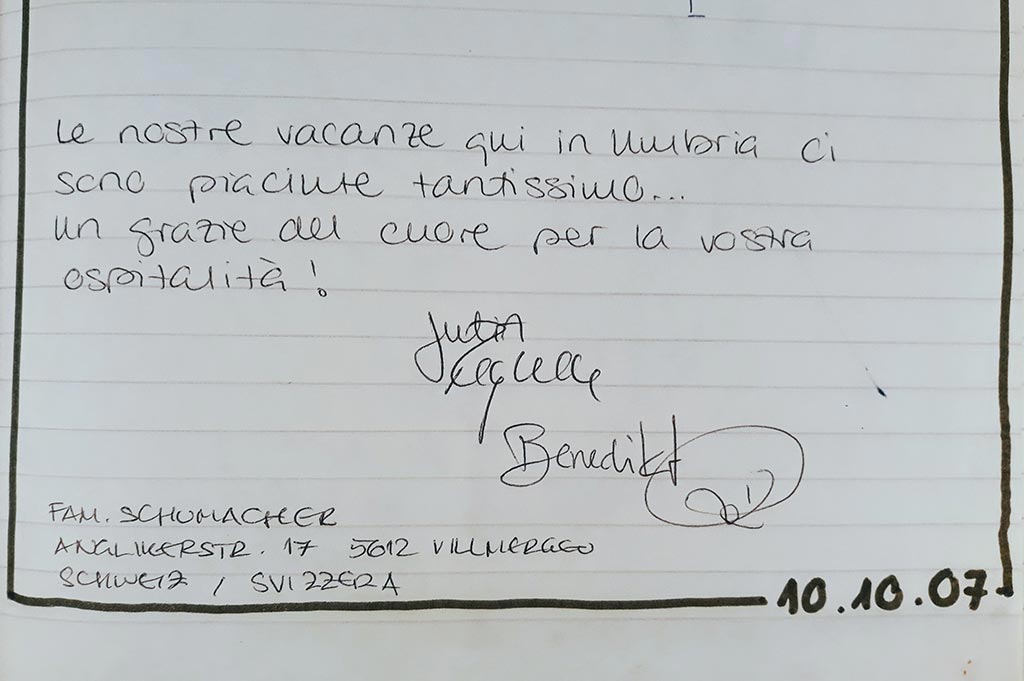 Le nostre vacanze qui in Umbria ci
sono piaciute tantissimo...
un grazie del cuore per la vostra
ospitalità!
Benedikt
FAM. SCHUMACHER
ANGLIKERSTR. 17 5612 VILLMERGEN
SCHWEIZ / SVIZZERA
10.10.07